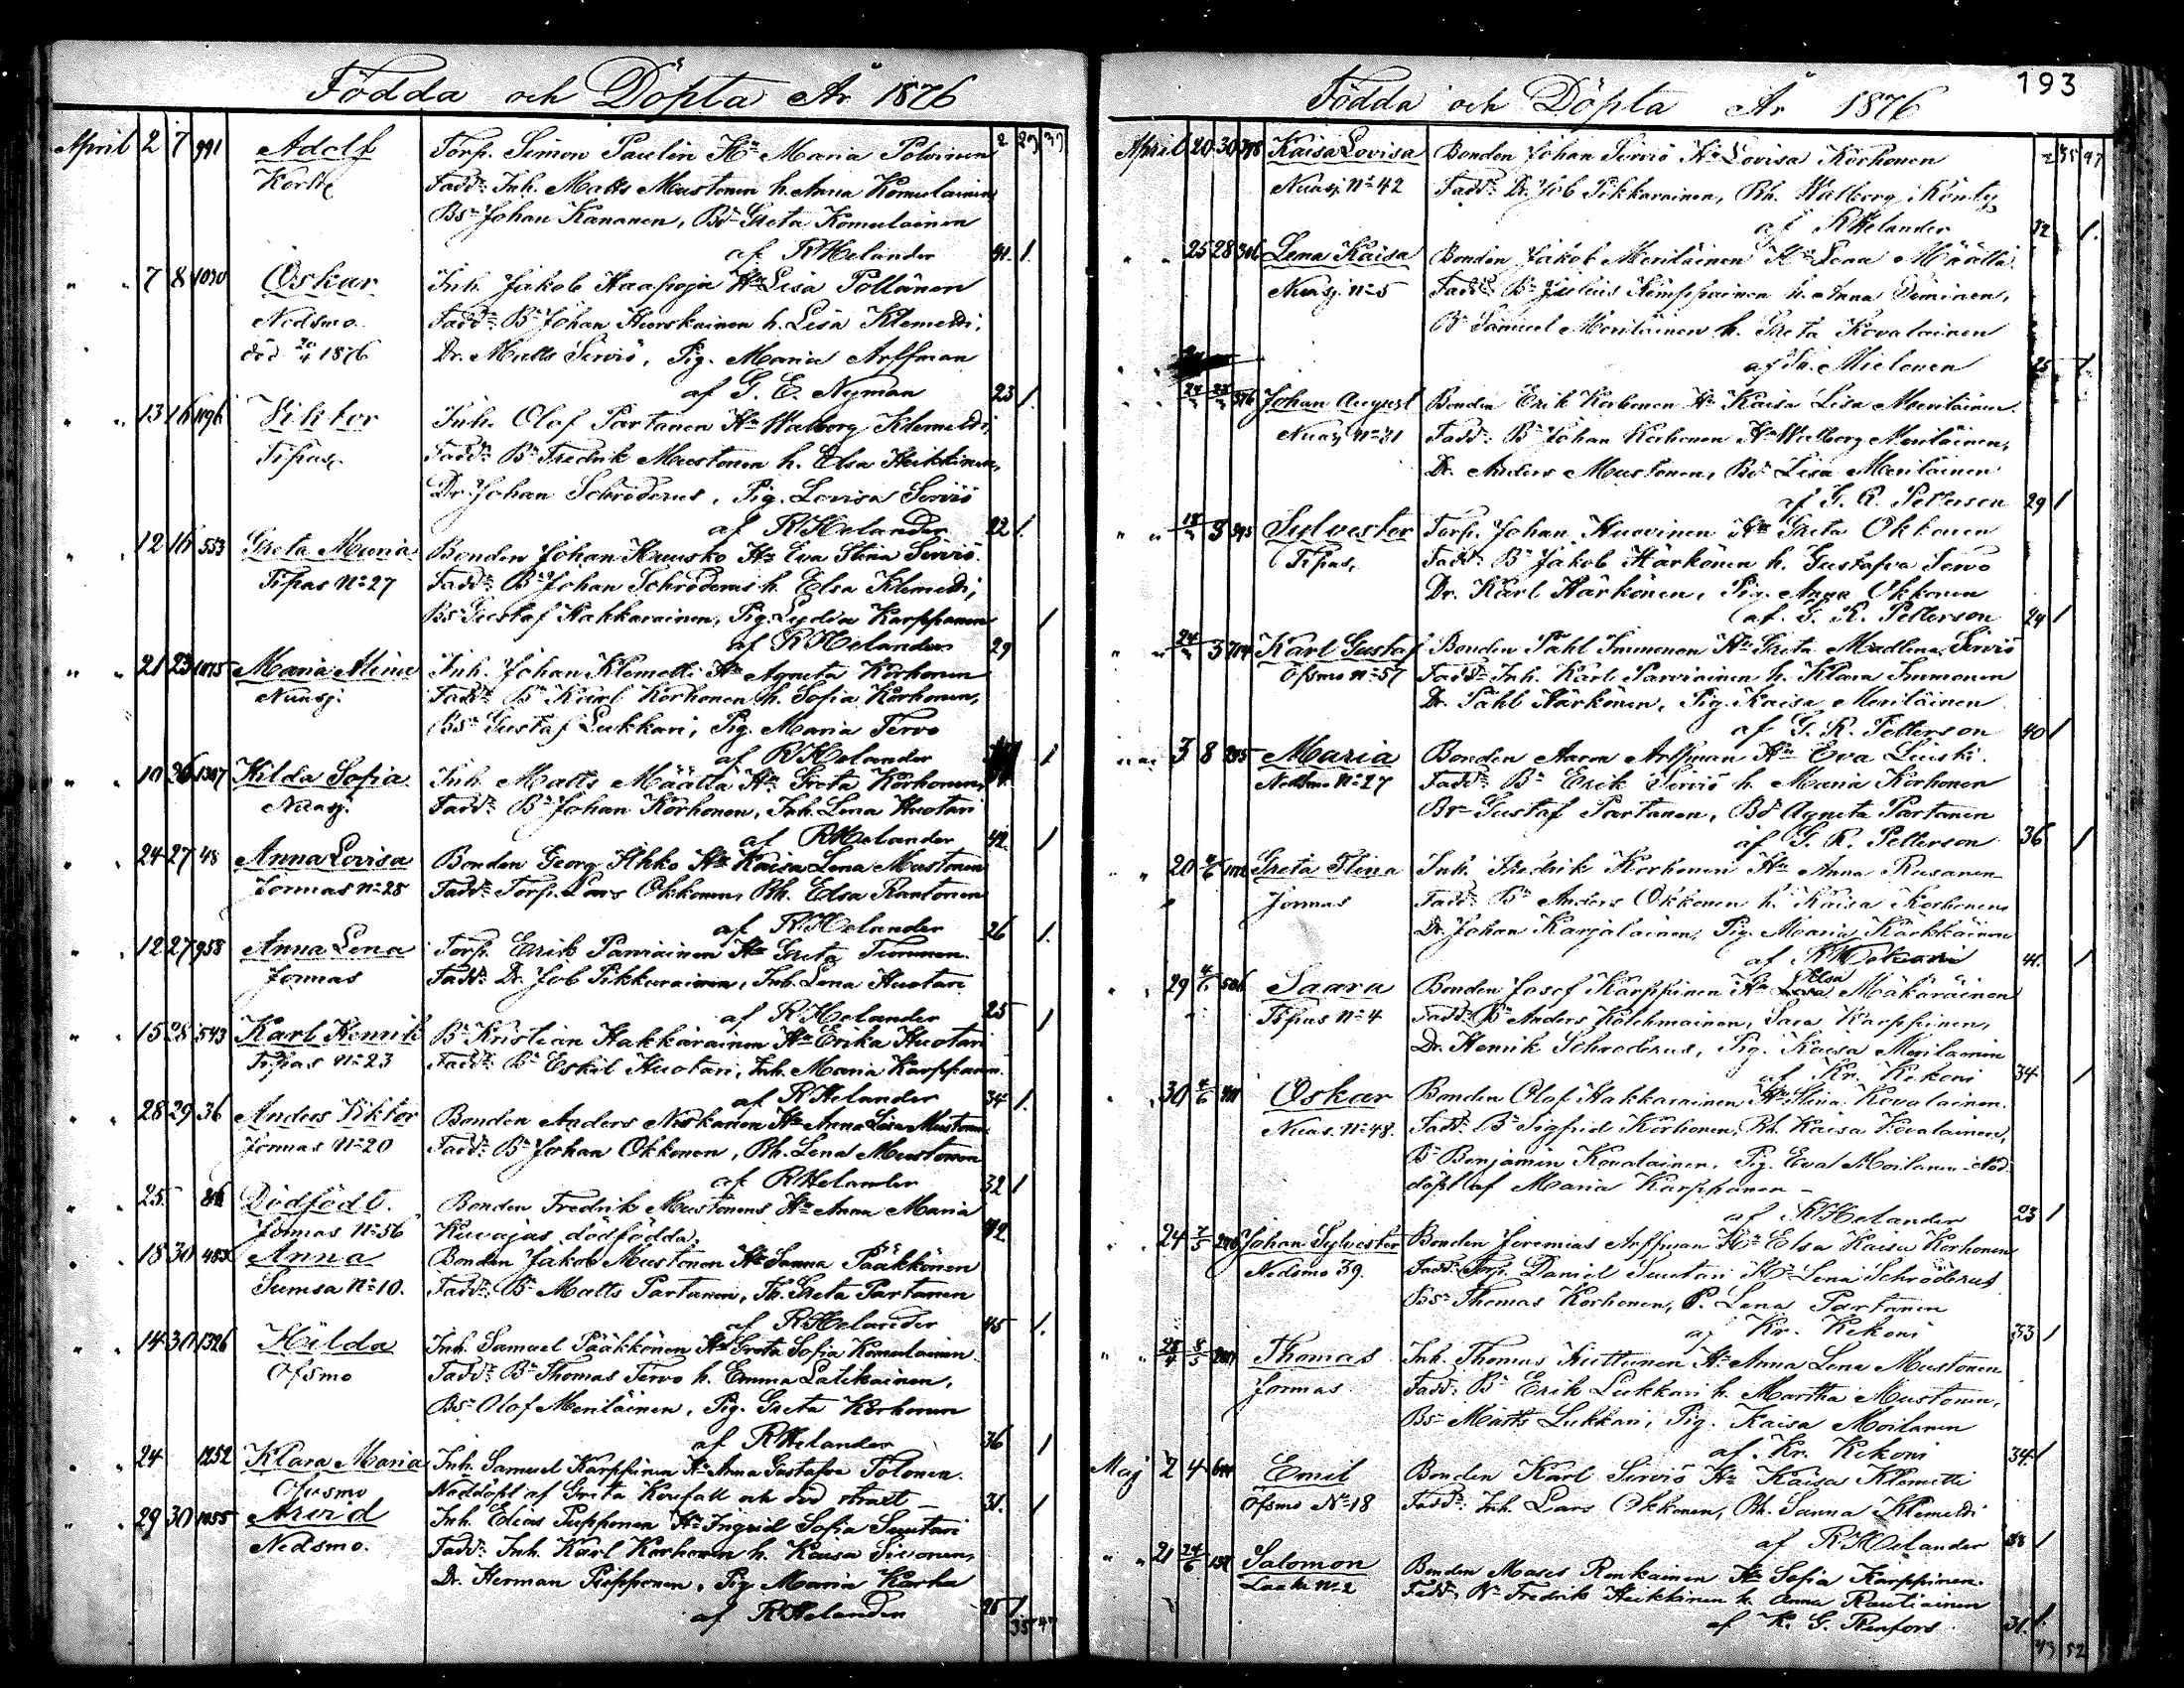 Födda och Döpta År 1876
April 2 7 991 Adolf Torp. Simon Paulin Hu Maria Polvinen 2 29 37
Korhe Fadd: Inh. Matts Mustonen h. Anna Komulainen
Bs Johan Kananen, Bd Greta Komulainen
af R Helander 41. 1.
" " 7 8 1030 Oskar Inh. Jakob Haapoja Hu Lisa Pöllänen
Nedsmo. Fadd: Bn Johan Hurskainen h. Lisa Klemetti,
död 20/4 1876 Dr. Matts Serviö, Pig. Maria Arffman
af G. E. Nyman 23 1.
" " 13 16 1196 Viktor Inh. Olof Partanen Hu Walborg Klemetti,
Tipas. Fadd: Bn Fredrik Mustonen h. Elsa Heikkinen,
Dr. Johan Schroderus, Pig. Lovisa Serviö
af R Helander 22 1.
" 12 16 553 Greta Maria Bonden Johan Huusko Hu Eva Stina Serviö.
Tipas No 27 Fadd: Bn Johan Schroderus h. Elsa Klemetti,
Bs Gustaf Hakkarainen, Pig. Lydia Karppanen 1
af R Helander 29
" " 21 23 1075 Maria Alina Inh. Johan Klemetti Hu Agneta Korhonen
Nuasj. Fadd: Bn Karl Korhonen h. Sofia Korhonen,
Bs Gustaf Lukkari, Pig. Maria Tervo
af R Helander 1
" " 10 26 1307 Hilda Sofia Inh. Matts Määttä Hu Greta Korhonen,
Nuasj. Fadd: Bn Johan Korhonen, Inh. Lena Huotari
af R Helander 42. 1
" " 24 27 48 Anna Lovisa Bonden Georg Kihko Hu Kaisa Lena Mustonen
Jormas No 28 Fadd: Torp. Lars Okkonen, Bh. Elsa Rantonen
af R Helander 26 1.
" " 12 27 958 Anna Lena Torp. Erik Parviainen Hu Greta Timonen.
Jormas Fadd: Dr. Job Pikkarainen, Inh. Lena Huotari
af R Helander 25 1
" " 15 28 543 Karl Henrik Bn Kristian Hakkarainen Hu Erika Huotari
Tipas No 23 Fadd: Bn Eskil Huotari, Inh. Maria Karppanen.
af R Helander 34 1.
" " 28 29 36 Anders Viktor Bonden Anders Niskanen Hu Anna Lisa Mustonen
Jormas No 20 Fadd: Bn Johan Okkonen, Bh. Lena Mustonen
af R Helander 32 1
" " 25. 86 Dödfödt. Bonden Fredrik Mustonens Hu Anna Maria
Jormas No 56 Kuvajas dödfödda. 42
" " 18 30 483 Anna Bonden Jakob Mustonen Hu Sanna Pääkkönen
Sumsa No 10. Fadd: Bn Matts Partanen, Bh. Greta Partanen
af R Helander 45 1.
" " 14 30 1326 Hilda Inh. Samuel Pääkkönen Hu Greta Sofia Komulainen
Ofsmo Fadd: Bn Thomas Tervo h. Emma Latikainen,
Bs Olof Meriläinen, Pig. Greta Korhonen
af R Helander 36 1
" " 24 1252 Klara Maria Inh. Samuel Karppinen Hu Anna Gustafva Polonen.
Ofvsmo Nöddöpt af Greta Kovfall och död straxt — 31. 1
" " 29 30 1055 Arvid Inh. Elias Piipponen Hu Ingrid Sofia Suutari
Nedsmo. Fadd: Inh. Karl Korhonen h. Kaisa Sivonen,
Dr. Herman Piipponen, Pig. Maria Karha
af R Helander 26 1.
35 47
193
Födda och Döpta År 1876
April 20 30 Kaisa Lovisa Bonden Johan Serviö Hu Lovisa Korhonen 2 35 47
Nuasj. No 42 Fadd: Dr. Job Pikkarainen, Bh. Walborg Könty
af R Helander 32 1.
" " 25 28 306 Lena Kaisa Bonden Jakob Meriläinen Hu Lena Määttä
Nuasj. No 5 Fadd: Bn Julius Kemppainen h. Anna Tominen,
Bn Samuel Meriläinen h. Greta Kovalainen
af Sr. Mielonen 25 1.
Johan August Bonden Erik Korhonen Hu Kaisa Lisa Meriläinen.
Nuasj. No 31 Fadd: Bn Johan Korhonen Hu Walborg Meriläinen,
Dr. Anders Mustonen, Bd Lisa Meriläinen
af G. R. Petterson 29 1
" " 3 Sylvester Torp. Johan Huovinen Hu Greta Okkonen
Tipas, Fadd: Bn Jakob Härkönen h. Gustafva Tervo
Dr. Karl Härkönen, Pig. Anna Okkonen
af G. R. Petterson 24 1
" " 3 714 Karl Gustaf Bonden Påhl Immonen Hu Greta Madlena Serviö
Ofsmo No 57 Fadd: Inh. Karl Parviainen h. Klara Immonen
Dr. Påhl Härkönen, Pig. Kaisa Meriläinen
af G. R. Petterson 40 1
3 8 Maria Bonden Aaron Arffman Hu Eva Leinski.
Nedsmo No 27 Fadd: Bn Erik Serviö h. Maria Korhonen
Bs Gustaf Partanen, Bd Agneta Partanen
af G. R. Petterson 36 1
" " 20 Greta Stina Inh. Fredrik Korhonen Hu Anna Rusanen
Jormas Fadd: Bn Anders Okkonen h. Kaisa Korhonen,
Dr. Johan Karjalainen, Pig. Maria Kärkkäinen
af 41. 1
" " 29 4/6 506 Saara Bonden Josef Karppinen Hu Elsa Mäkäräinen
Tipas No 4 Fadd: Bn Anders Kolehmainen, Sara Karppinen,
Dr. Henrik Schroderus, Pig. Kaisa Meriläinen
af Kr. Kekoni 34 1
" " 30 4/6 Oskar Bonden Olof Hakkarainen Hu Stina Kovalainen.
Nuas. No 48. Fadd: Bn Sigfrid Korhonen, Bh. Kaisa Kovalainen,
Bn Benjamin Kovalainen, Pig. Eva Moilanen Nöd
döpt af Maria Karppanen —
af R Helander 23 1
" " 24 7/5 Johan Sylvester Bonden Jeremias Arffman Hu Elsa Kaisa Korhonen
Nedsmo 39. Fadd: Torp. Daniel Suutari Hu Lena Schröderus
Bs Thomas Korhonen, P. Lena Partanen
af Kr. Kekoni 33 1
" " 28/4 8/5 Thomas Inh. Thomas Kuttunen Hu Anna Lena Mustonen
Jormas Fadd: Bn Erik Lukkari h. Martha Mustonen,
Bs Matts Lukkari, Pig. Kaisa Moilanen
af Kr. Kekoni 34. 1
Maj 2 4 Emil Bonden Karl Serviö Hu Kaisa Klemetti
Ofsmo No 18 Fadd: Inh. Lars Okkonen, Bh. Sanna Klemetti
af R Helander 38 1
" " 21 24/6 Salomon Bonden Moses Ronkainen Hu Sofia Karppinen.
No 2 Fadd: Bn Fredrik Heikkinen h. Anna Rautiainen
af K. G. Renfors 31. 1.
43 52